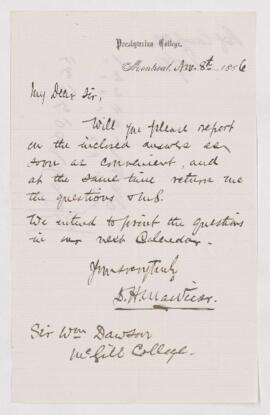 Presbyterian College,
Montreal, Nov. 8th 1886
My Dear Sir,
Will you please report
on the inclosed answers as
soon as convenient, and
at the same time return me
the questions
We intend to print the questions
in our next Calendar.
Yours very truly
D. H. MacVicar.
Sir Wm Dawson
McGill College.